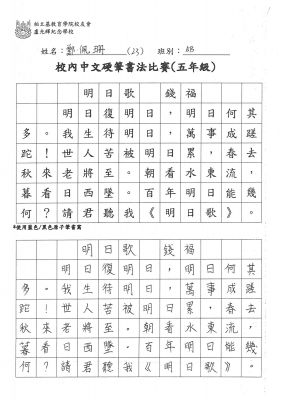 柏立基教育學院校友會
盧光輝紀念學校
姓名：鄭佩珊 (23) 班別：5B
校內中文硬筆書法比賽(五年級)
明日歌 錢福
明日復明日，明日何其
多。我生待明日，萬事成蹉
跎！世人苦被明日累，春去
秋來老將至。朝看水東流，
暮看日西墜。百年明日能幾
何？請君聽我《明日歌》。
*使用藍色/黑色原子筆書寫
明日歌 錢福
明日復明日，明日何其
多。我生待明日，萬事成蹉
跎！世人苦被明日累，春去
秋來老將至。朝看水東流，
暮看日西墜。百年明日能幾
何？請君聽我《明日歌》。